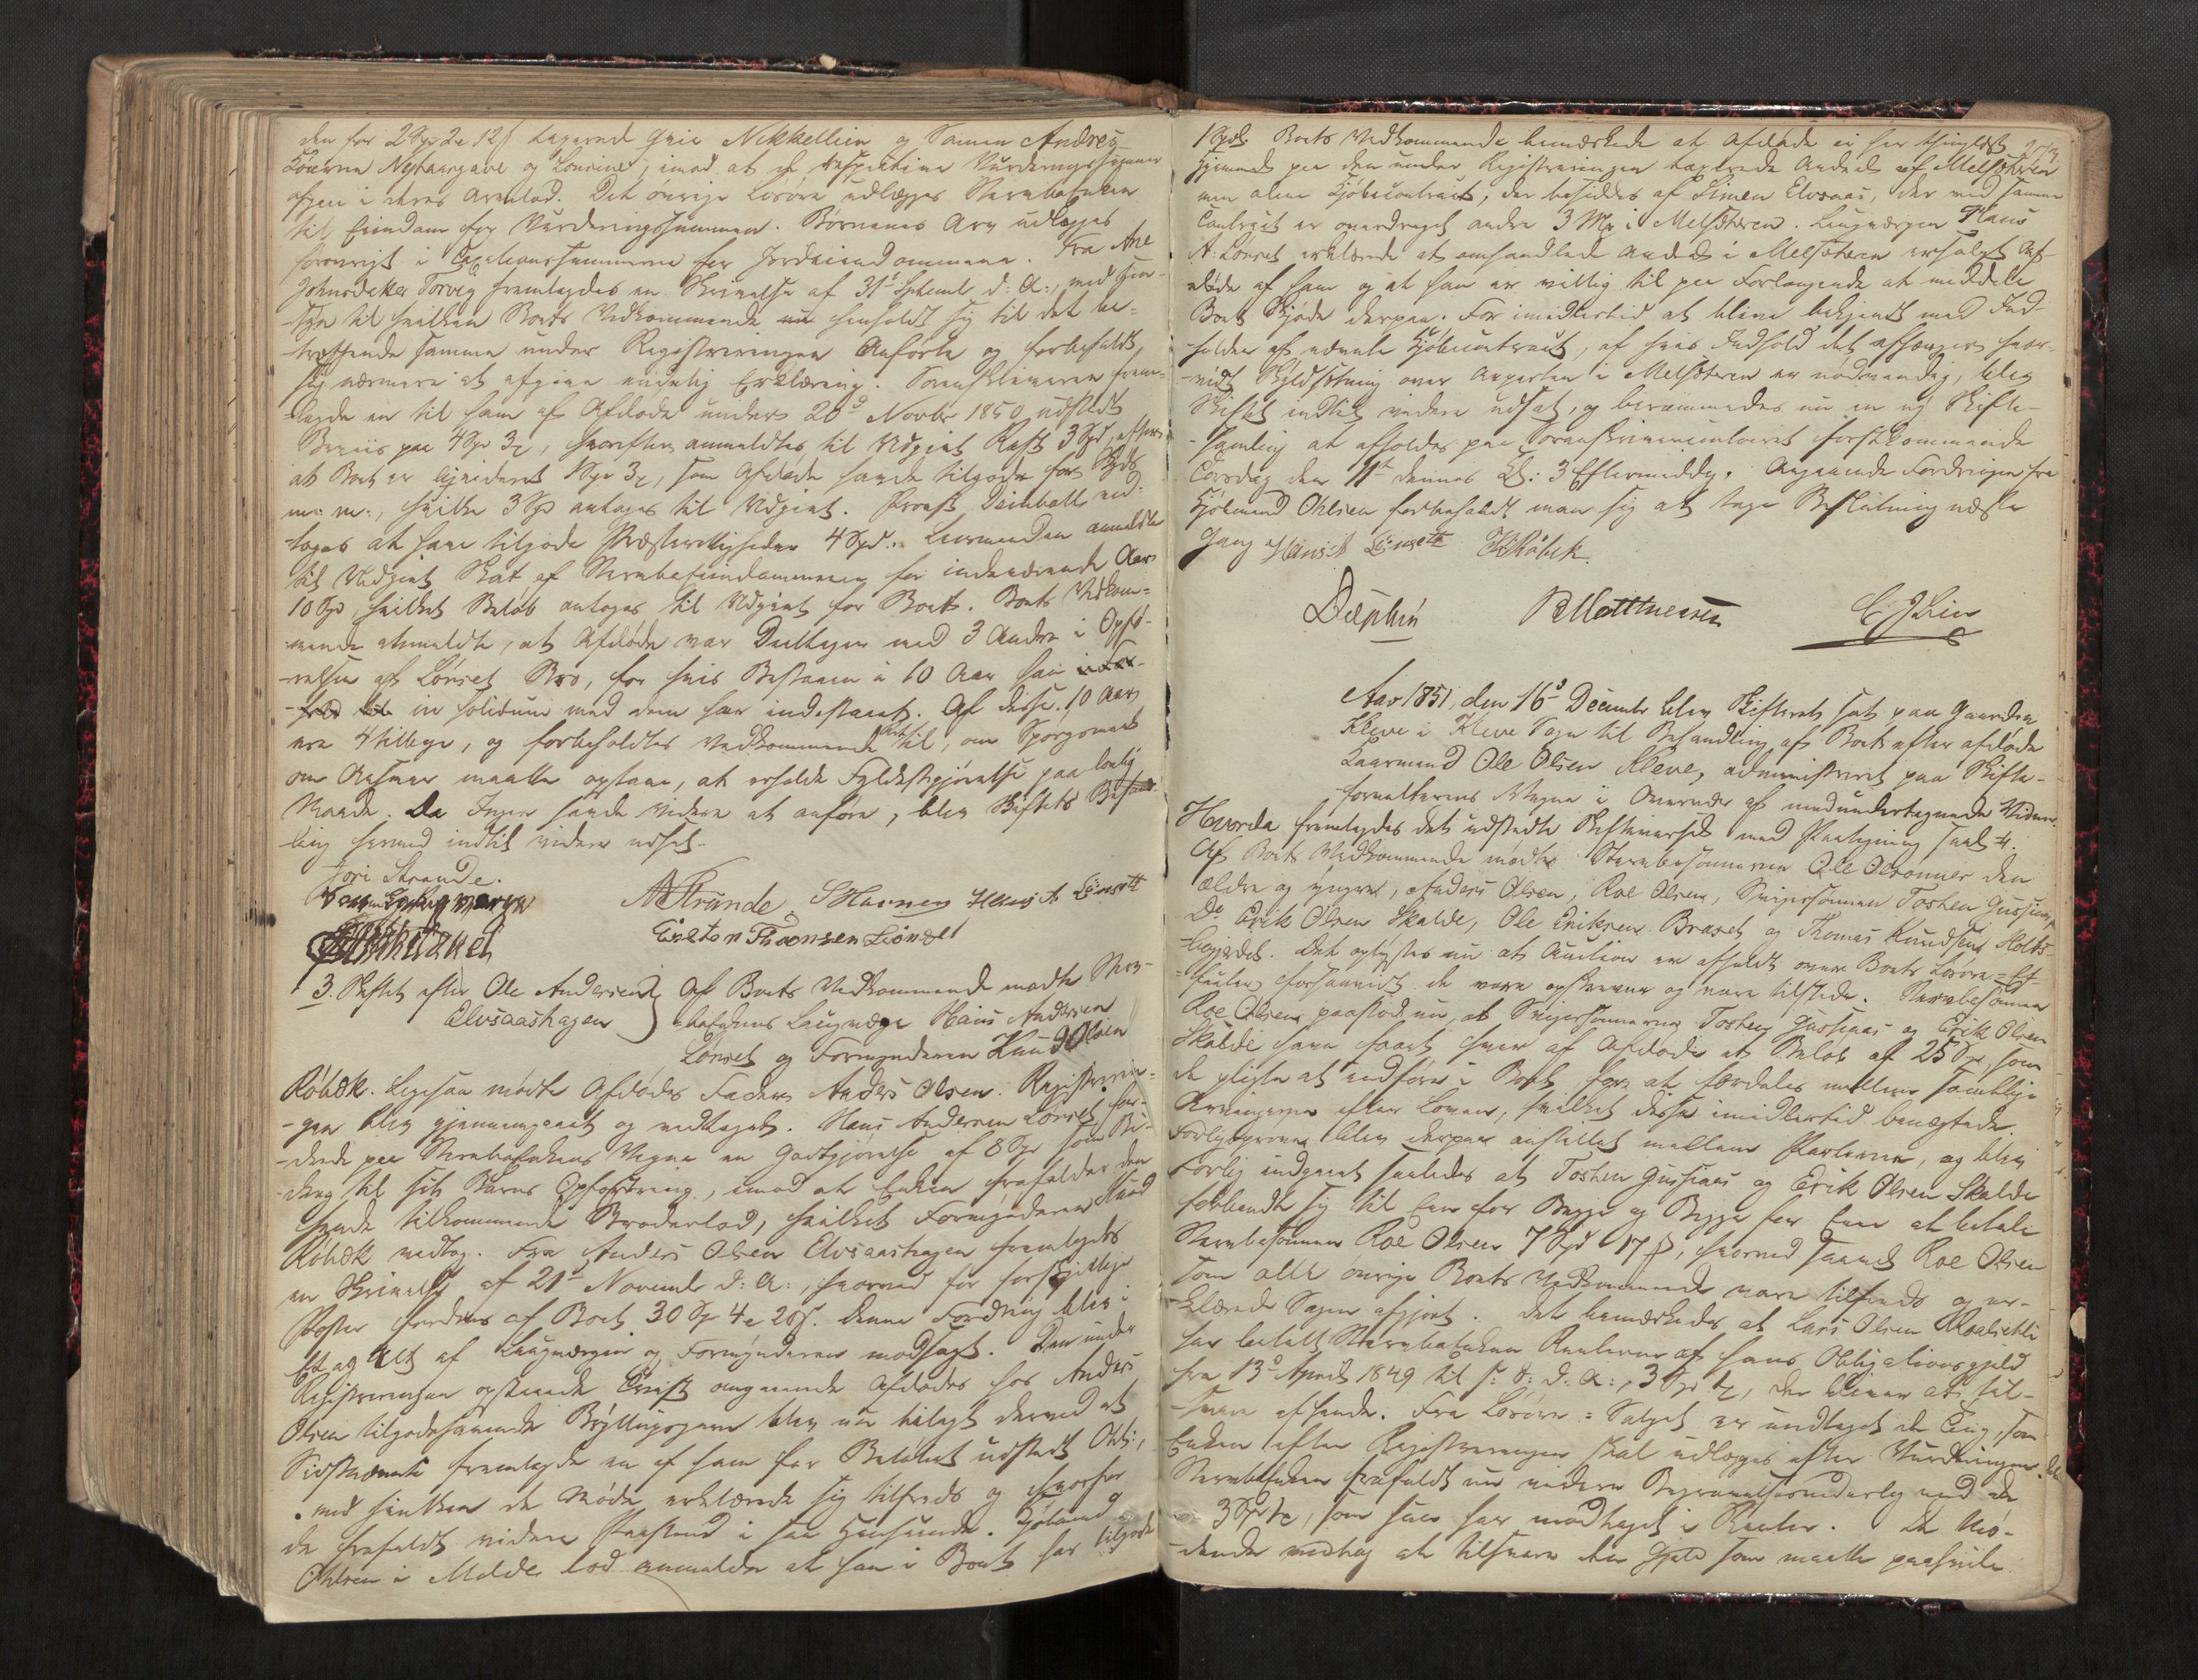 den for 2 Spd 2 12 s taxerede Grie Nikkellien og Sønnen Andreas
Køerne Nyhaargave og Lovrine, imod at de respective Vurderingssummer
afgaar i deres Arvelod. Det øvrige Løsøre udlægges Stervboenken
til Eiendom for Vurderingssummen. Børnenes Arv udlægges
forøvrigt i Taxationssummerne for Jordeiendommene. Fra Ane
Johnsdatter Torvig fremlagdes en Skrivelse af 31te d: A:, med Hen-
-syn til hvilken Boets Vedkommende henholdt sig til det be-
-træffende samme under Registreringen Anførte og forbeholdt
sig nærmere at afgive endelig Erklæring. Sorenskriveren frem-
-lagde en til ham af Afdøde under 20de Novbr 1850 udstedt
Beviis paa 4 Spd 3, hvorefter anmeldtes til Udgivt Rest 3 Spd, efter
at Boet er krediteret 1 Spd 3, som Afdøde havde tilgode for
m: m:, hvilke 3 Spd antoges til Udgivt. Provst Deinboll ved-
-toges at have tilgode Præsterettigheder 4 Spd. Lensmanden anmeldte
til Udgivt Skat af Stervboeiendommene for indeværende Aar
10 Spd, hvilket Beløb antoges til Udgivt for Boet. Boets Vedkom-
-mende anmeldte, at Afdøde var Deeltager med 3 Andre i Opfø-
-relsen af Lønset Bro, for hvis Bestaaen i 10 Aar han
in solidum med dem har indestaaet. Af disse 10 Aar
ere 4 tilbage, og forbeholdtes Vedkommende Ret til, om Spørgsmaal
om Ansvar maatte opstaae, at erholde Fyldestgjørelse paa lovlig
Maade. Da Ingen havde videre at anføre, blev Skiftets Behand-
-ling herved indtil videre udsat.
Jori Strande.
N Strande S Havnen Hans A Lönsett
Esten Thoonsen Liönset
3. Skiftet efter Ole Andersen Elvsaashagen } Af Boets Vedkommende mødte Sterv-
boenkens Laugværge Hans Andersen
Lønset og Formynderen Knud Olsen
Röbek. Ligesaa mødte Afdødes Fader Anders Olsen. Registrerin-
-gen blev gjennemgaaet og vedtaget. Hans Andersen Lønset for-
-drede paa Stervboenkens Vegne en Godtgjørelse af 8 Spd som Bi-
-drag til sit Barns Opfostring, imod at Enken frafalder den
hende tilkommende Broderlod, hvilket Formynderen Knud
Röbek vedtog. Fra Anders Olsen Elvsaashagen fremlagdes
en Skrivelse af 21de Novemb d: A:, hvorved for forskjellige
Poster fordres af Boet 30 Spd 4 20 s. Denne Fordring blev i
Et og Alt af Laugværgen og Formynderen modsagt. Den under
Registreringen opstaaede Tvist angaaende Afdødes hos Anders
Olsen tilgodehavende Bryllupsgave blev nu bilagt derved at
Sidstnævnte fremlagde en af ham for Beløbet udstedt Obli,
med hvilken de Mødte erklærede sig tilfreds og hvorfor
de frafaldt videre Paastand i saa Henseende. Kjøbmand
Ohlsen i Molde lod anmelde at han i Boet har tilgode
1 Spd. Boets Vedkommende bemærkede at Afdøde ei har thinglyst
Hjemmel paa den under Registreringen taxerede Andeel af Melsæteren
men alene Kjøbecontract, der besiddes af Simen Elvsaas, der ved samme
Contract er overdraget andre 3 Mk i Melsæteren. Laugværgen Hans
A: Lønset erklærede at omhandlede Andeel i Melsæteren er solgt Af-
-døde af ham og at han er villig til paa Forlangende at meddele
Boet Skjøde derpaa. For imidlertid at blive bekjendt med Ind-
-holdet af nævnte Kjøbecontract, af hvis Indhold det afhænger hvor-
-vidt Skyldsætning over Axxparten i Melsæteren er nødvendig, blev
Skiftet indtil videre udsat, og berammedes nu en ny Skifte-
-samling at afholdes paa Sorenskrivercontoiret førstkommende
Torsdag den 11te dennes Kl: 3 Eftermiddag. Angaaende Fordringen fra
Kjøbmand Ohlsen forbeholdt man sig at tage Beslutning næste
Gang Hans A Lönsett K Röbek.
Daphin P Matthiessen C J Lien
Aar 1851, den 16de Decembr blev Skifteret sat paa Gaarden
Kleve i Kleve Sogn til Behandling af Boet efter afdøde
Kaarmand Ole Olsen Kleve, administreret paa Skifte-
forvalterens Vegne i Overvær af medundertegnede Vidner.
Hvorda fremlagdes det udstædte Skiftevarsel med Paategning saal:
Af Boets Vedkommende mødte Stervbosønnerne Ole Olsønner den
ældre og yngre, Anders Olsen, Roe Olsen, Svigersønnen Tosten Gussiaas,
Do Erik Olsen Skalde, Ole Eriksen Braset og Thomas Knudsen Holts-
-bugjerdet. Det oplystes nu at Auction er afholdt over Boets Løsøre-Ef-
-fecter forsaavidt de vare opskrevne og vare tilstede. Stervbosønnen
Roe Olsen paastod nu at Svigersønnerne Tosten Gussiaas og Erik Olsen
Skalde have faaet hver af Afdøde et Beløb af 25 Spd, som
de pligte at indføre i Boet for at fordeles mellem samtlige
Arvingerne efter Loven, hvilket disse imidlertid benægtede.
Forligsprøve blev derpaa anstillet mellem Parterne, og blev
Forlig indgaaet saaledes at Tosten Gussiaas og Erik Olsen Skalde
forbandt sig til Een for Begge og Begge for Een at betale
Stervbosønnen Roe Olsen 7 Spd 17 s, hvorved saavel Roe Olsen
som alle øvrige Boets Vedkommende vare tilfreds og er-
-klærede Sagen afgjort. Det bemærkedes at Lars Olsen
har betalt Stervboenken Renterne af hans Obligationsgjæld
fra 13de April 1849 til s: D: d: A:, 3 Spd, der bliver at til-
-svare af hende. Fra Løsøre-Salget er undtaget de Ting, som
Enken efter Registreringen skal udlægges efter Vurderingen.
Stervboenken frafaldt nu videre Begravelsesudlæg ved de
3 Spd, som hun har modtaget i Renter. De Mø-
-dende vedtog at tilsvare den Gjæld som maatte paahvile